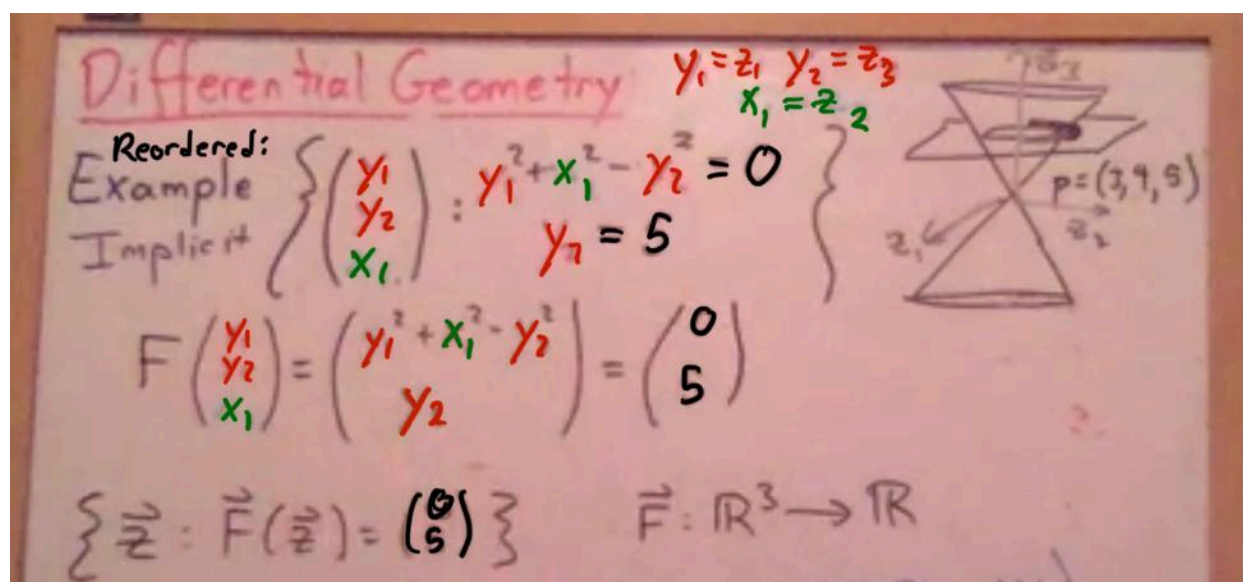 Differential Geometry
y₁ = z₁ y₂ = z₃
x₁ = z₂
Reordered:
Example
Implicit
{ (y₁ y₂ x₁) : y₁² + x₁² - y₂² = 0
y₂ = 5 }
z₃
p = (3, 4, 5)
z₁
z₂
F (y₁ y₂ x₁) = (y₁² + x₁² - y₂² y₂) = (0 5)
{ z⃗ : F⃗(z⃗) = (0 5) } F⃗ : ℝ³ → ℝ